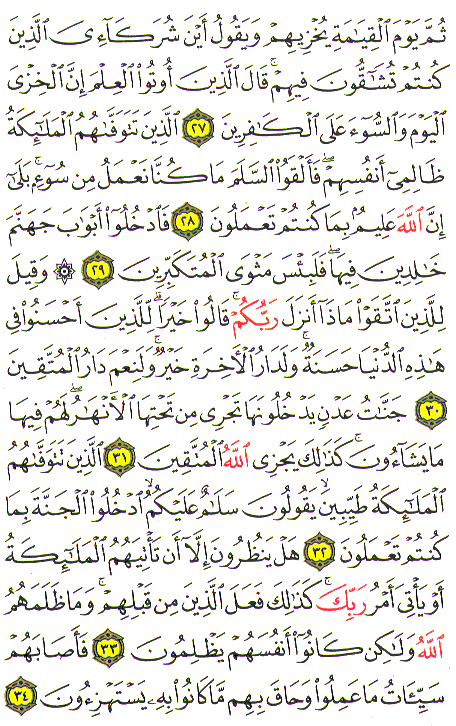 ثُمَّ يَوْمَ ٱلْقِيَٰمَةِ يُخْزِيهِمْ وَيَقُولُ أَيْنَ شُرَكَآءِىَ ٱلَّذِينَ
كُنتُمْ تُشَٰٓقُّونَ فِيهِمْ ۚ قَالَ ٱلَّذِينَ أُوتُوا۟ ٱلْعِلْمَ إِنَّ ٱلْخِزْىَ
ٱلْيَوْمَ وَٱلسُّوٓءَ عَلَى ٱلْكَٰفِرِينَ ٢٧ ٱلَّذِينَ تَتَوَفَّىٰهُمُ ٱلْمَلَٰٓئِكَةُ
ظَالِمِىٓ أَنفُسِهِمْ ۖ فَأَلْقَوُا۟ ٱلسَّلَمَ مَا كُنَّا نَعْمَلُ مِن سُوٓءٍۭ ۚ بَلَىٰٓ
إِنَّ ٱللَّهَ عَلِيمٌۢ بِمَا كُنتُمْ تَعْمَلُونَ ٢٨ فَٱدْخُلُوٓا۟ أَبْوَٰبَ جَهَنَّمَ
خَٰلِدِينَ فِيهَا ۖ فَلَبِئْسَ مَثْوَى ٱلْمُتَكَبِّرِينَ ٢٩ ۞ وَقِيلَ
لِلَّذِينَ ٱتَّقَوْا۟ مَاذَآ أَنزَلَ رَبُّكُمْ ۚ قَالُوا۟ خَيْرًا ۗ لِّلَّذِينَ أَحْسَنُوا۟ فِى
هَٰذِهِ ٱلدُّنْيَا حَسَنَةٌ ۚ وَلَدَارُ ٱلْءَاخِرَةِ خَيْرٌ ۚ وَلَنِعْمَ دَارُ ٱلْمُتَّقِينَ
٣٠ جَنَّٰتُ عَدْنٍ يَدْخُلُونَهَا تَجْرِى مِن تَحْتِهَا ٱلْأَنْهَٰرُ ۖ لَهُمْ فِيهَا
مَا يَشَآءُونَ ۚ كَذَٰلِكَ يَجْزِى ٱللَّهُ ٱلْمُتَّقِينَ ٣١ ٱلَّذِينَ تَتَوَفَّىٰهُمُ
ٱلْمَلَٰٓئِكَةُ طَيِّبِينَ ۙ يَقُولُونَ سَلَٰمٌ عَلَيْكُمُ ۙ ٱدْخُلُوا۟ ٱلْجَنَّةَ بِمَا
كُنتُمْ تَعْمَلُونَ ٣٢ هَلْ يَنظُرُونَ إِلَّآ أَن تَأْتِيَهُمُ ٱلْمَلَٰٓئِكَةُ
أَوْ يَأْتِىَ أَمْرُ رَبِّكَ ۚ كَذَٰلِكَ فَعَلَ ٱلَّذِينَ مِن قَبْلِهِمْ ۚ وَمَا ظَلَمَهُمُ
ٱللَّهُ وَلَٰكِن كَانُوٓا۟ أَنفُسَهُمْ يَظْلِمُونَ ٣٣ فَأَصَابَهُمْ
سَيِّـَٔاتُ مَا عَمِلُوا۟ وَحَاقَ بِهِم مَّا كَانُوا۟ بِهِۦ يَسْتَهْزِءُونَ ٣٤